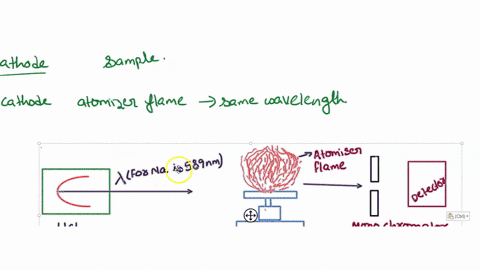 athode sample.
cathode atomizer flame → same wavelength
λ (for Na. is 589nm)
Atomiser
flame
Detector
(Ctrl)